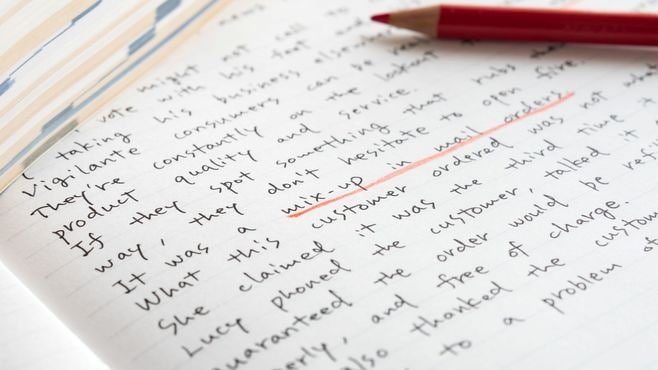 news
might not call to
vote with his feet and
taking his business elsewhere
Vigilante consumers can be
They're constantly on the lookout
product quality and service.
If they spot something that rubs the
way, they don't hesitate to open fire.
It was a mix-up in mail orders.
What this customer ordered was not
She claimed it was the third time it
Lucy phoned the customer, talked it
guaranteed the order would be
and free of charge.
also thanked the
to a problem of